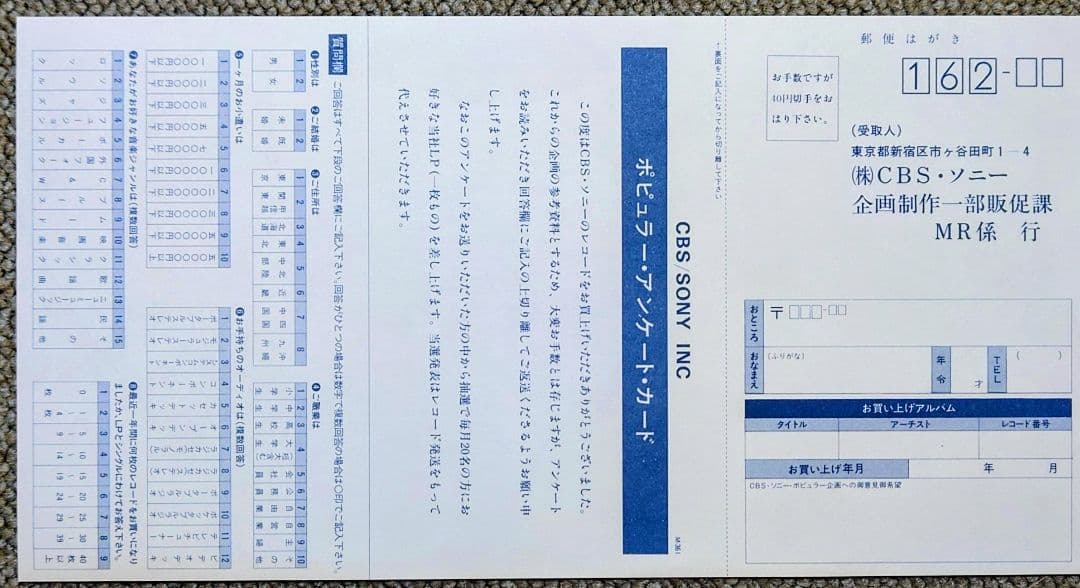 郵便はがき
162-
お手数ですが
40円切手をお
はり下さい。
(受取人)
東京都新宿区市ヶ谷田町1―4
(株)CBS・ソニー
企画制作一部販促課
MR係 行
おところ
〒
おなまえ
(ふりがな)
年令
才
TEL
( )
お買い上げアルバム
タイトル
アーチスト
レコード番号
お買い上げ年月
年 月
CBS・ソニー・ポピュラー企画への御意見御希望
↑裏面をご記入になってから切り離して下さい
CBS/SONY INC
ポピュラー・アンケート・カード
M-361
この度はCBS・ソニーのレコードをお買上げいただきありがとうございました。
これからの企画の参考資料とするため、大変お手数とは存じますが、アンケート
をお読みいただき回答欄にご記入の上切り離してご返送くださるようお願い申
し上げます。
なおこのアンケートをお送りいただいた方の中から抽選で毎月20名の方にお
好きな当社LP(一枚もの)を差し上げます。当選発表はレコード発送をもって
代えさせていただきます。
質問欄
ご回答はすべて下段のご回答欄にご記入下さい。回答がひとつの場合は数字で複数回答の場合は○印でご記入下さい。
❶性別は
1 男
2 女
❷ご結婚は
1 未婚
2 既婚
❸ご住所は
1 東京
2 関東
3 北海道
4 東北
5 中部
6 近畿
7 中国 四国
8 九州 沖縄
❹ご職業は
1 小学生
2 中学生
3 高校生
4 大学生(短大含む)
5 会社員
6 公務員
7 自由業
8 自営業
9 主婦
10 その他
❺一ヶ月のお小遣いは
1 一〇〇〇円以下
2 二〇〇〇円以下
3 三〇〇〇円以下
❻お手持ちのオーディオは(複数回答)
1 ポータブルステレオ
2 モジュラーステレオ
3 システムコンポーネント
4 コンポーネント
5 カセットデッキ
6 オープンデッキ
11 テレビチューナー
12 ビデオデッキ
❼あなたがお好きな音楽ジャンルは(複数回答)
1 ロック
2 ソウル
3 ジャズ
4 フュージョン
5 ボーカル
6 外国フォーク
7 C&W
8 ブルース
9 ムード
10 映画音楽
11 クラシック
12 歌謡曲
13 ニューミュージック
14 民謡
15 その他
❽最近一年間に何枚のレコードをお買いになり
ましたか、LPとシングルにわけてお答え下さい。
1 0枚
2 1―4枚
3 5―9
4 10―14
5 15―19
6 20―24
7 25―29
8 30―39
9 40枚以上